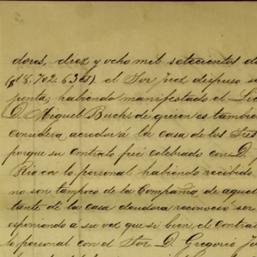 dores, diez y ocho mil setecientos d
(18.702.63 es) el Sor Juez dispuso s
junta, habiendo manifestado el
D. Miguel Buch de quien es tambien
acreedora la casa de los Sres
porque su contrato fué celebrado con D.
Rio a lo personal habiendo recibido
no son tampoco de la Compañia de aquel
de la casa deudora reconoció ser
esponiendo a su vez que si bien el contra
lo personal con el Sor. D. Gregorio